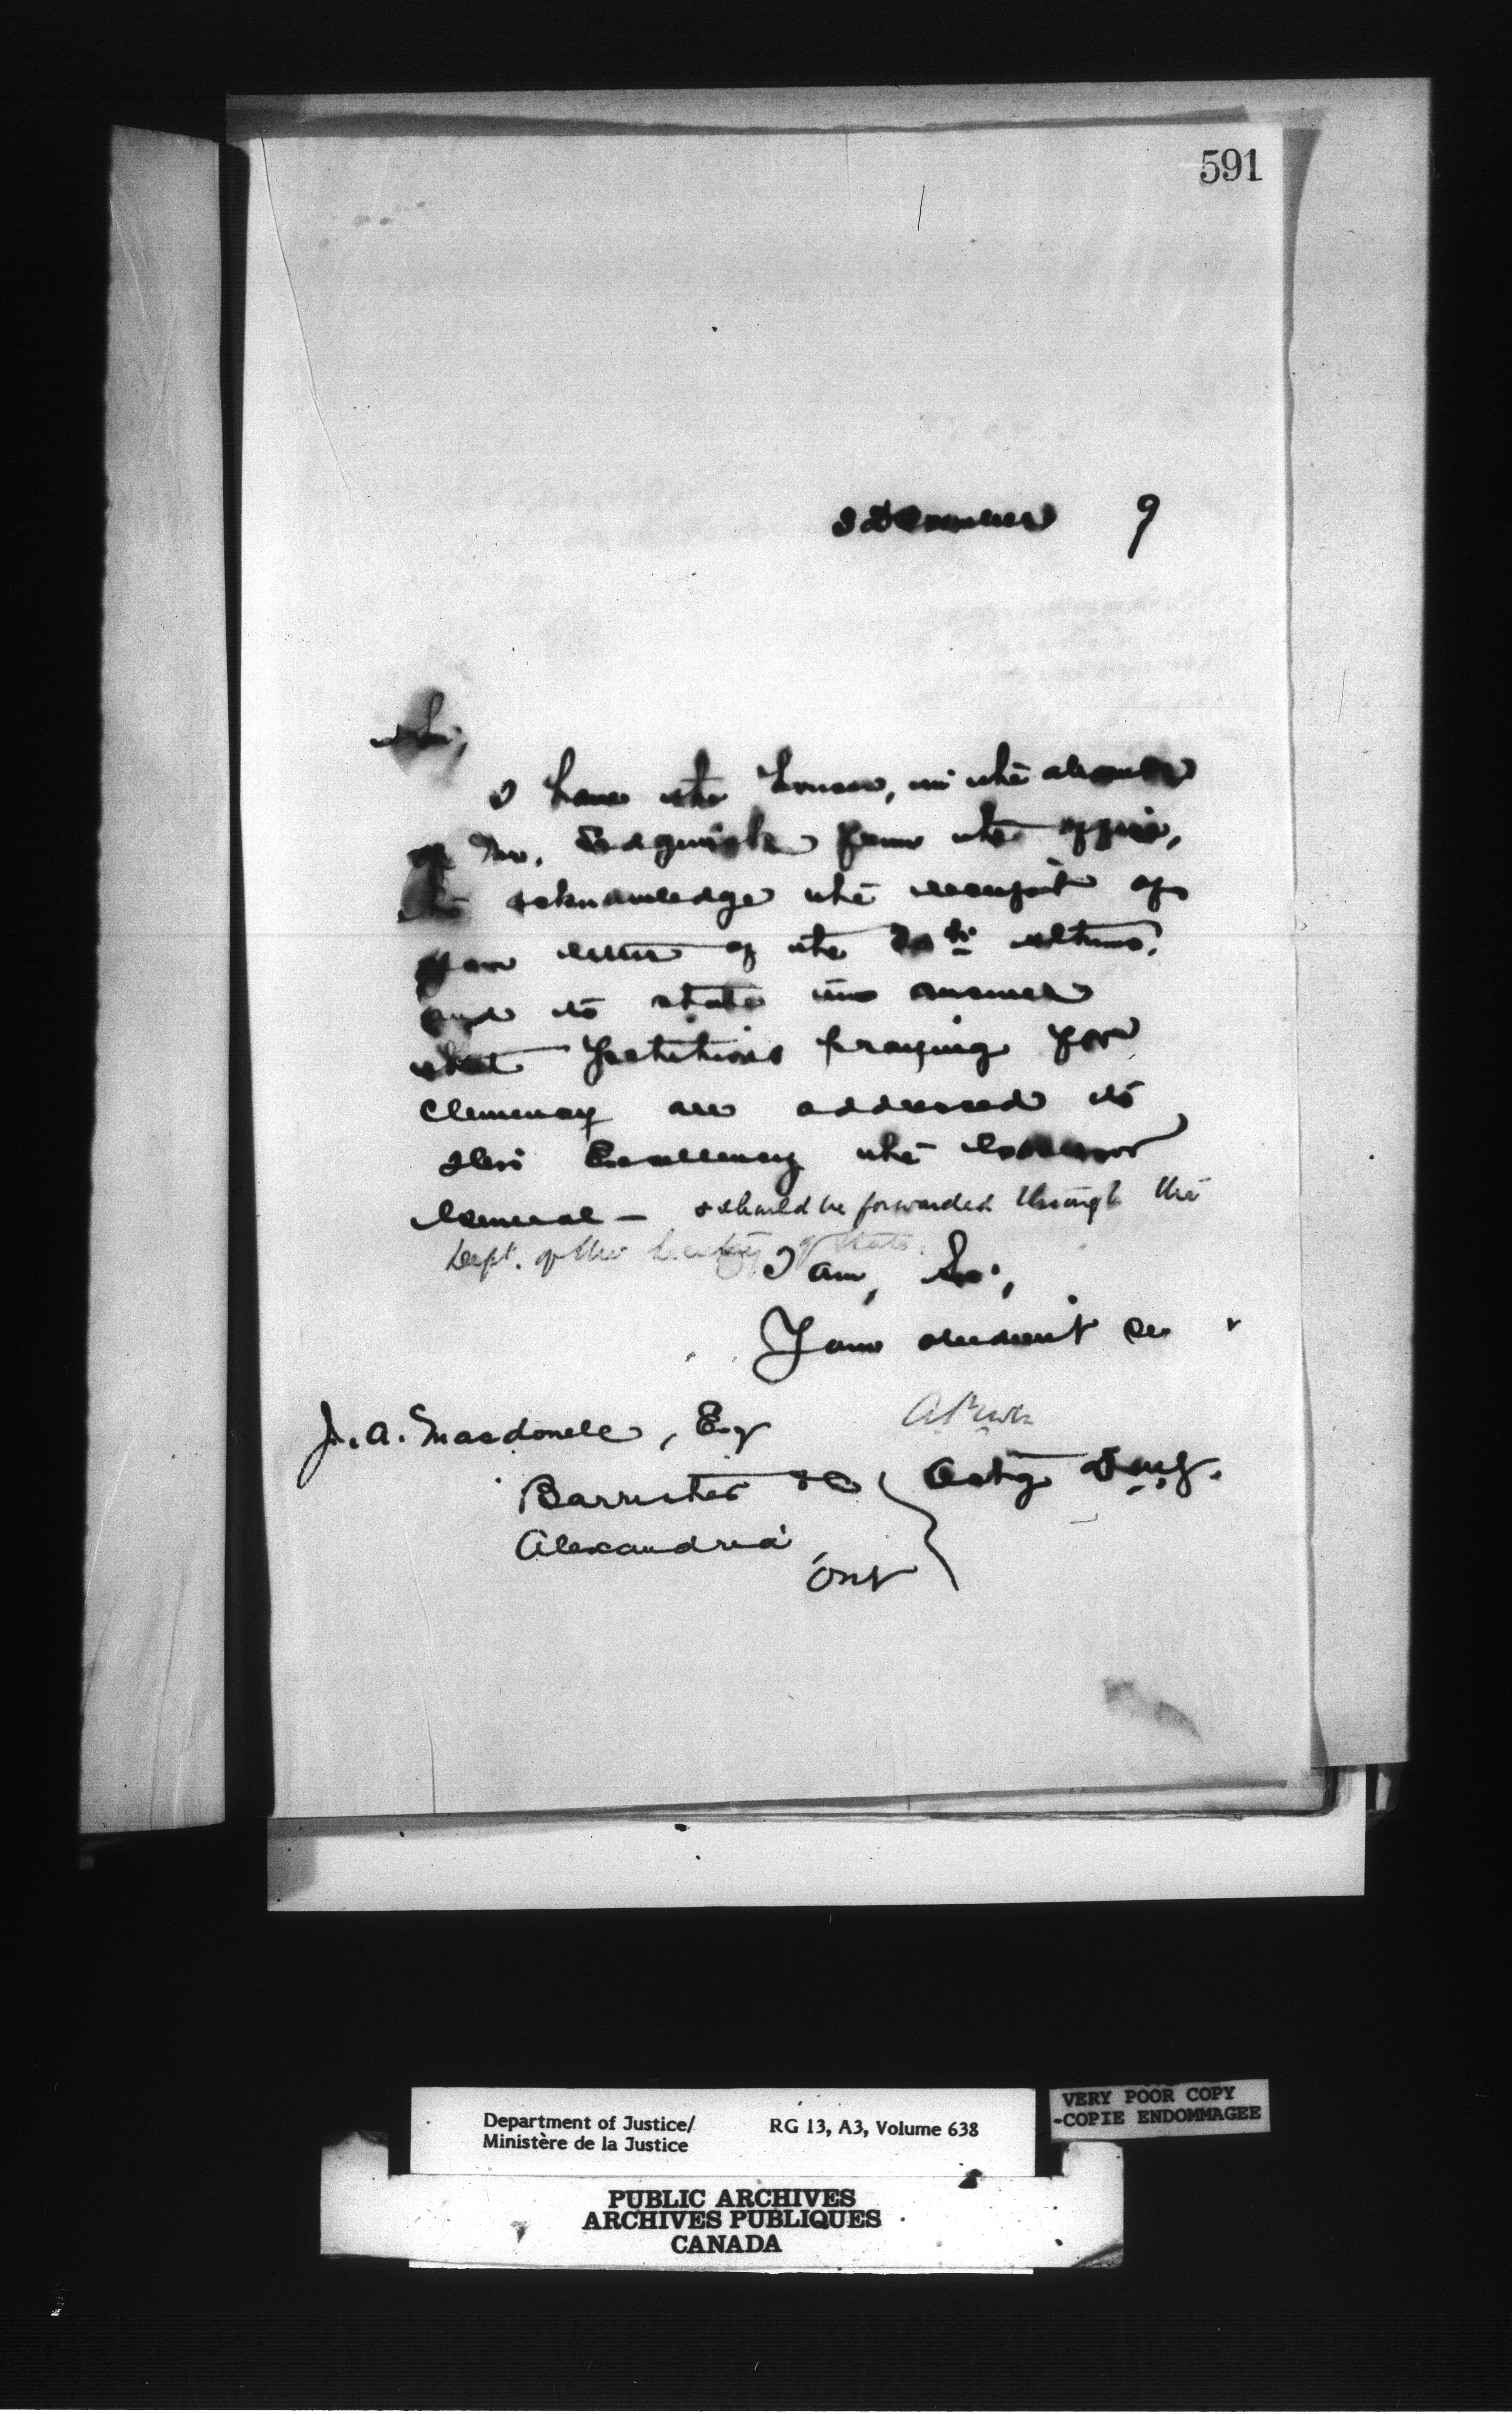 591
December 9
Sir,
I have the honour, in the absence
of Mr. Sedgwick from the office,
to acknowledge the receipt of
your letter of the 30th ultimo,
and to state in answer
that petitions praying for
clemency are addressed to
His Excellency the Governor
General — & should be forwarded through the
Dept. of the Secretary of State.
I am, Sir,
Your obedient se
J. A. Macdonell, Esq
A Power
Barrister &c
Actg D.M.J.
Alexandria
Ont
Department of Justice/
Ministère de la Justice
RG 13, A3, Volume 638
VERY POOR COPY
-COPIE ENDOMMAGEE
PUBLIC ARCHIVES
ARCHIVES PUBLIQUES
CANADA